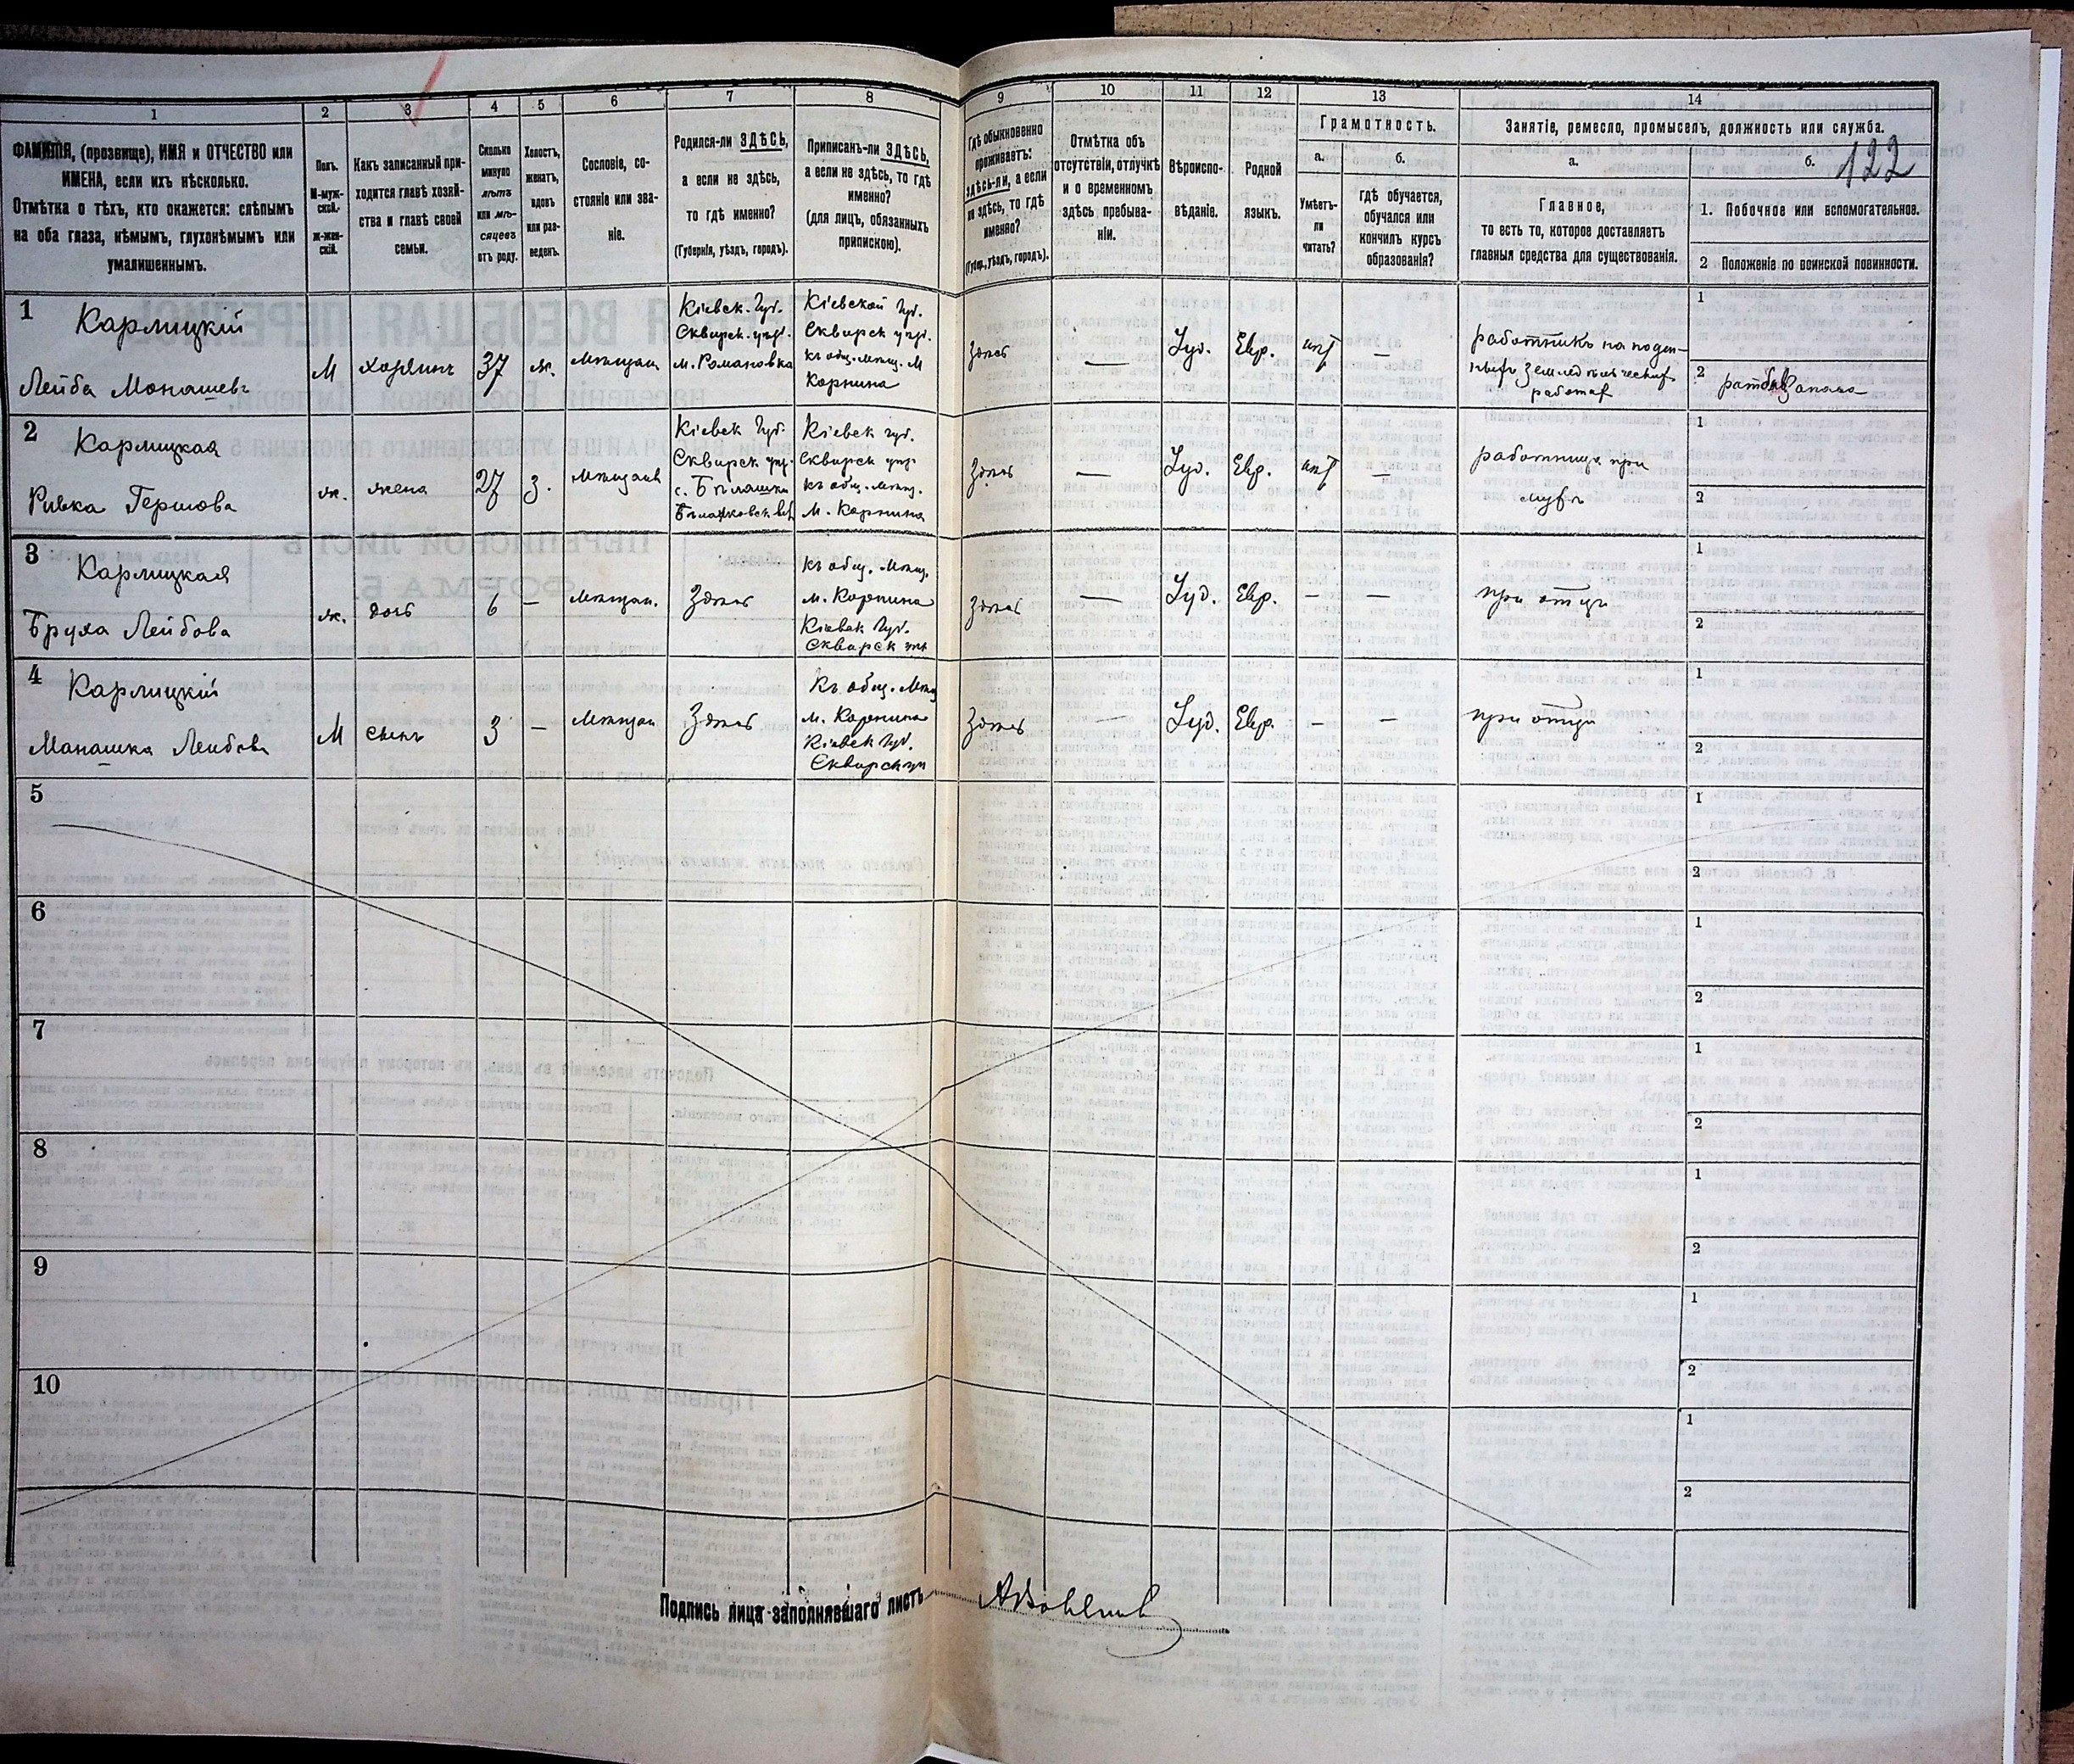 1
2
3
4
5
6
7
8
9
10
11
12
13
14
122
ФАМИЛІЯ, (прозвище), ИМЯ и ОТЧЕСТВО или
ИМЕНА, если ихъ нѣсколько.
Отмѣтка о тѣхъ, кто окажется: слѣпымъ
на оба глаза, нѣмымъ, глухонѣмымъ или
умалишеннымъ.
Полъ.
М-муж-
ской.
ж-жен-
скій.
Какъ записанный при-
ходится главѣ хозяй-
ства и главѣ своей
семьи.
Сколько
минуло
лѣтъ
или мѣ-
сяцевъ
отъ роду.
Холостъ,
женатъ,
вдовъ
или раз-
веденъ.
Сословіе, со-
стояніе или зва-
ніе.
Родился-ли ЗДѢСЬ,
а если не здѣсь,
то гдѣ именно?
(Губернія, уѣздъ, городъ).
Приписанъ-ли ЗДѢСЬ,
а если не здѣсь, то гдѣ
именно?
(для лицъ, обязанныхъ
припискою).
Гдѣ обыкновенно
проживаетъ:
здѣсь-ли, а если
не здѣсь, то гдѣ
именно?
(Губер., уѣздъ, городъ).
Отмѣтка объ
отсутствіи, отлучкѣ
и о временномъ
здѣсь пребыва-
ніи.
Вѣроиспо-
вѣданіе.
Родной
языкъ.
Грамотность.
а.
Умѣетъ-
ли
читать?
б.
гдѣ обучается,
обучался или
кончилъ курсъ
образованія?
Занятіе, ремесло, промыселъ, должность или служба.
а.
Главное,
то есть то, которое доставляетъ
главныя средства для существованія.
б.
1. Побочное или вспомогательное.
2 Положеніе по воинской повинности.
1
Карлицкій
Лейба Монашевъ
М
хозяинъ
37
ж.
Мѣщан
Кіевск. Губ.
Сквирск. уѣз.
м. Романовка
Кіевской Губ.
Сквирск уѣз.
къ общ. Мѣщ. М
Корнина
Здѣсь
—
Іуд.
Евр.
нѣт
—
работникъ на поден-
ныхъ земледѣлческих
работах
1
2
2
Карлицкая
Ривка Гершова
ж.
жена
27
з.
Мѣщанк
Кіевск Губ.
Сквирск уѣз.
с. Бѣлашки
Кіевск губ.
Сквирск уѣз.
къ общ. Мѣщ.
М. Корнина
Здѣсь
—
Іуд.
Евр.
нѣт
—
работница при
мужѣ
1
2
3
Карлицкая
Бруха Лейбова
ж.
дочь
6
—
Мѣщан.
Здѣсь
къ общ. Мѣщ.
М. Корнина
Кіевск Губ.
Сквирск уѣз
Здѣсь
—
Іуд.
Евр.
—
—
при отцѣ
1
2
4
Карлицкій
Манашка Лейбовъ
М
сынъ
3
—
Мѣщан
Здѣсь
къ общ. Мѣщ
М. Корнина
Кіевск Губ.
Сквирск уѣ
Здѣсь
—
Іуд.
Евр.
—
—
при отцѣ
1
2
5
1
2
6
1
2
7
1
2
8
1
2
9
1
2
10
1
2
Подпись лица заполнявшаго листъ